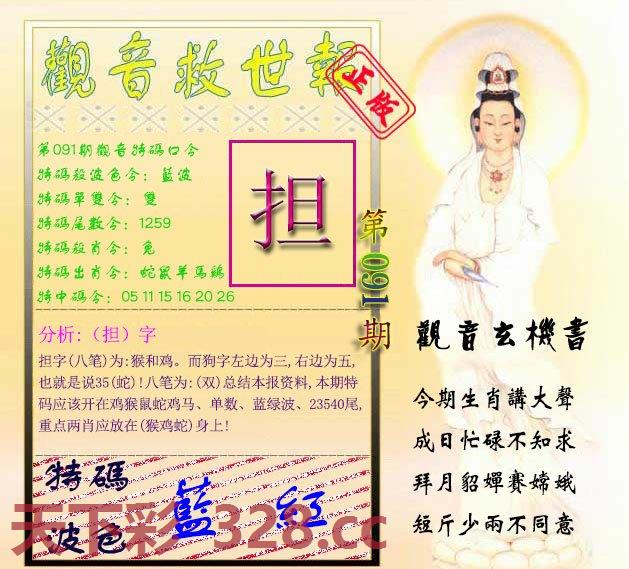 觀音救世報
正版
第091期觀音特碼口令
特碼殺波色令：藍波
特碼單雙令：雙
特碼尾數令：1259
特碼殺肖令：兔
特碼出肖令：蛇鼠羊馬鷄
特中碼令：05 11 15 16 20 26
担
第091期
分析:（担）字
担字(八笔)为:猴和鸡。而狗字左边为三,右边为五,
也就是说35(蛇)!八笔为:(双)总结本报资料,本期特
码应该开在鸡猴鼠蛇鸡马、单数、蓝绿波、23540尾,
重点两肖应放在(猴鸡蛇)身上!
特碼
波色
藍 紅
天下彩 328.cc
觀音玄機書
今期生肖講大聲
成日忙碌不知求
拜月貂嬋賽嫦娥
短斤少兩不同意